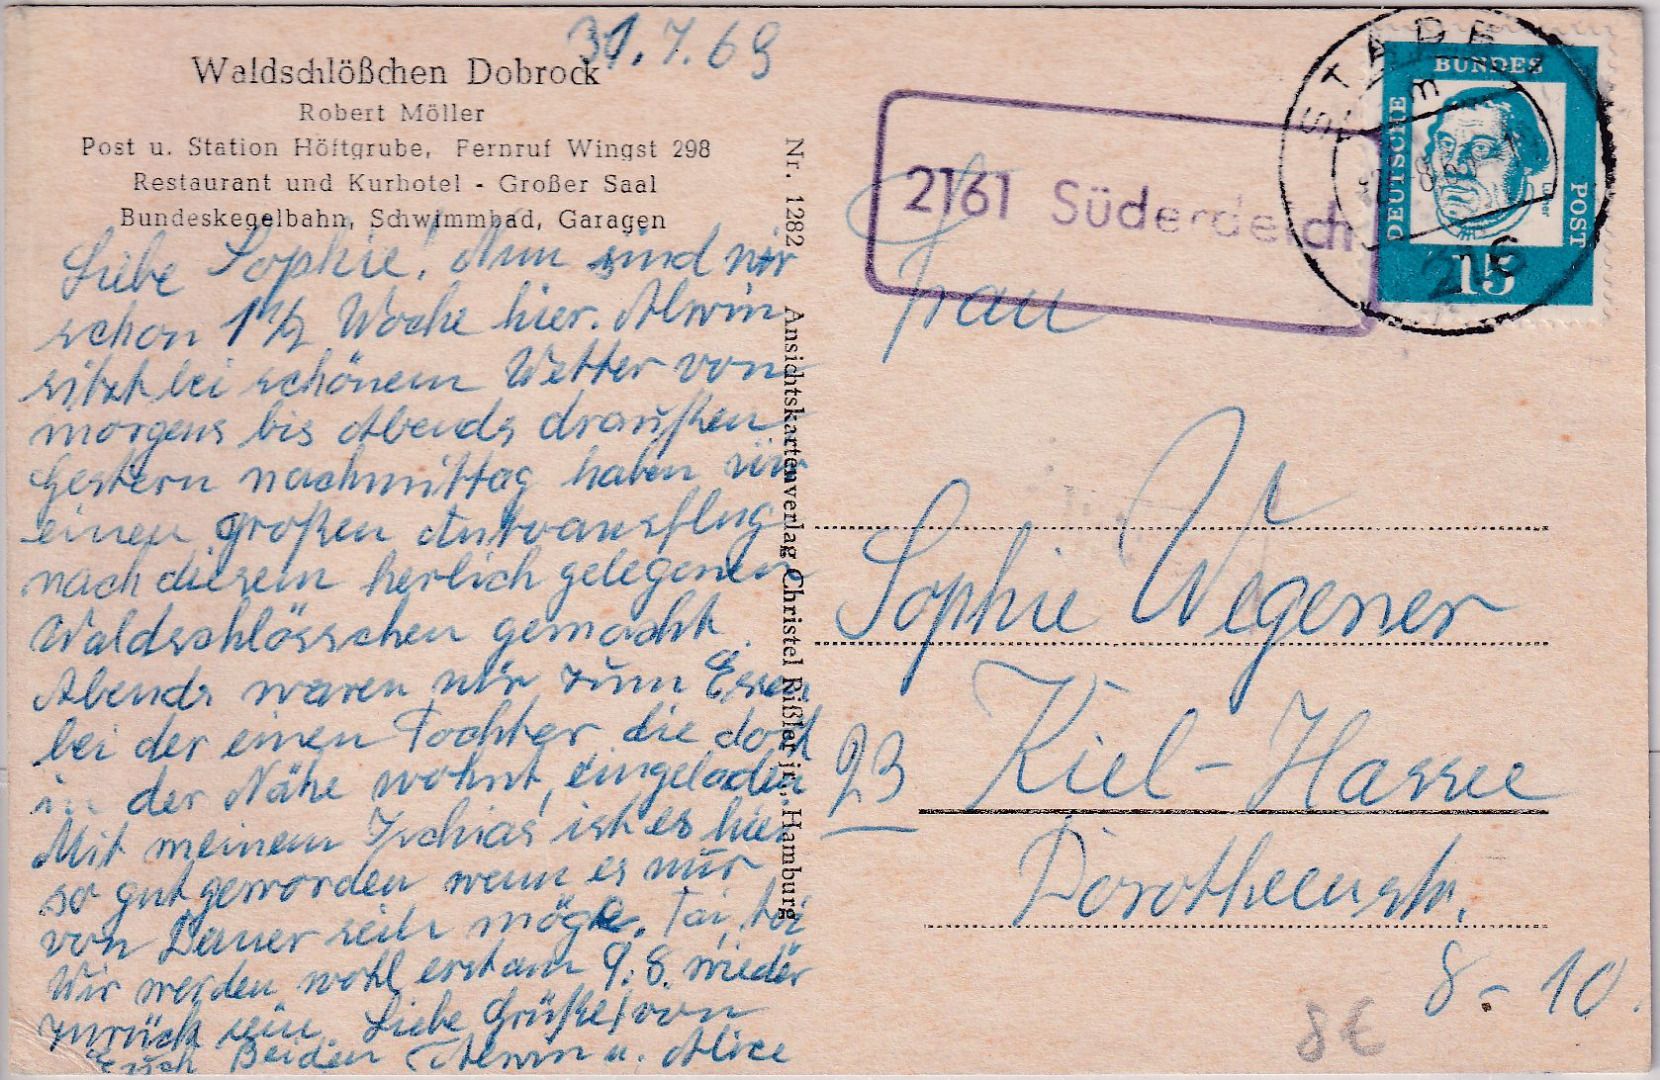 31.7.69
Waldschlößchen Dobrock
Robert Möller
Post u. Station Höftgrube, Fernruf Wingst 298
Restaurant und Kurhotel - Großer Saal
Bundeskegelbahn, Schwimmbad, Garagen
Liebe Sophie! Nun sind wir
schon 1 1/2 Woche hier. Alwin
sitzt bei schönem Wetter von
morgens bis Abends draußen
Gestern nachmittag haben wir
einen großen Autoausflug
nach diesem herlich gelegenen
Waldschlösschen gemacht.
Abends waren wir zum Essen
bei der einen Tochter die dort
in der Nähe wohnt, eingeladen.
Mit meinem Ischias ist es hier
so gut geworden wenn es nur
von Dauer sein möge. Toi, toi
Wir werden wohl erst am 9.8. wieder
zurück sein. Liebe Grüße von
Euch Beiden Alwin u. Alice
Nr. 1282 Ansichtskartenverlag Christel Rißler jr., Hamburg
2161 Süderdeich
STADE
m
216
DEUTSCHE
BUNDES
POST
Luther
15
Frau
Sophie Wegener
23 Kiel-Hassee
Dorotheenstr.
8-10.
8€